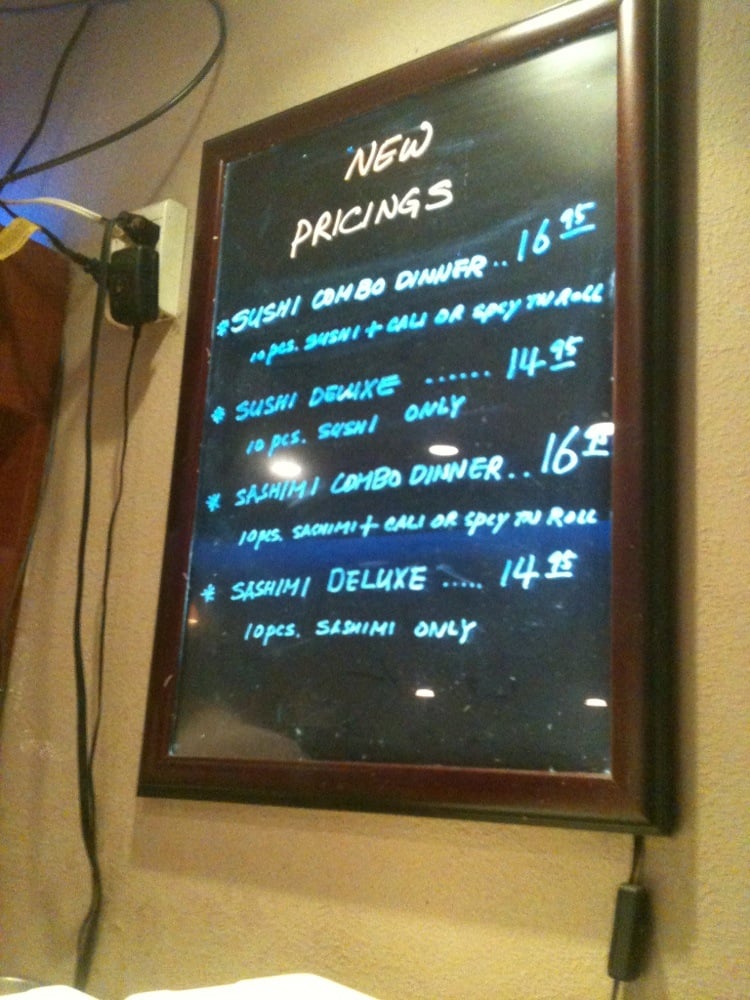 NEW
PRICINGS
* SUSHI COMBO DINNER.. 16 95
10 pcs. SUSHI + CALI OR SPCY TN ROLL
* SUSHI DELUXE ...... 14 95
10 pcs. SUSHI ONLY
* SASHIMI COMBO DINNER.. 16
10 pcs. SASHIMI + CALI OR SPCY TN ROLL
* SASHIMI DELUXE ..... 14 95
10 pcs. SASHIMI ONLY